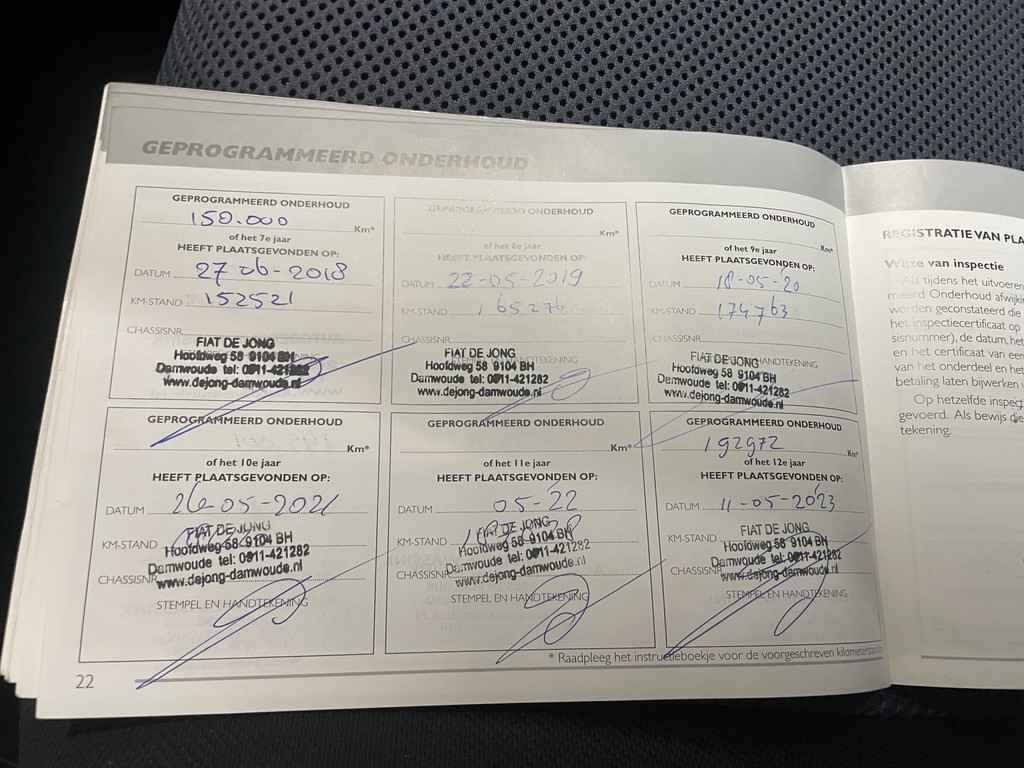 GEPROGRAMMEERD ONDERHOUD
GEPROGRAMMEERD ONDERHOUD
150.000 Km*
of het 7e jaar
HEEFT PLAATSGEVONDEN OP:
DATUM 27 06-2018
KM-STAND 152521
CHASSISNR.
FIAT DE JONG
Hoofdweg 58 9104 BH
Damwoude tel: 0511-421282
www.dejong-damwoude.nl
GEPROGRAMMEERD ONDERHOUD
Km*
of het 8e jaar
HEEFT PLAATSGEVONDEN OP:
DATUM 22-05-2019
KM-STAND 165276
CHASSISNR.
HANDTEKENING
FIAT DE JONG
Hoofdweg 58 9104 BH
Damwoude tel: 0511-421282
www.dejong-damwoude.nl
GEPROGRAMMEERD ONDERHOUD
Km*
of het 9e jaar
HEEFT PLAATSGEVONDEN OP:
DATUM 18-05-20
KM-STAND 174763
CHASSISNR.
HANDTEKENING
FIAT DE JONG
Hoofdweg 58 9104 BH
Damwoude tel: 0511-421282
www.dejong-damwoude.nl
GEPROGRAMMEERD ONDERHOUD
Km*
of het 10e jaar
HEEFT PLAATSGEVONDEN OP:
DATUM 26-05-2021
KM-STAND
FIAT DE JONG
Hoofdweg 58 9104 BH
Damwoude tel: 0511-421282
CHASSISNR.
www.dejong-damwoude.nl
STEMPEL EN HANDTEKENING
GEPROGRAMMEERD ONDERHOUD
Km*
of het 11e jaar
HEEFT PLAATSGEVONDEN OP:
DATUM 05-22
KM-STAND
FIAT DE JONG
Hoofdweg 58 9104 BH
Damwoude tel: 0511-421282
CHASSISNR.
www.dejong-damwoude.nl
STEMPEL EN HANDTEKENING
GEPROGRAMMEERD ONDERHOUD
192972 Km*
of het 12e jaar
HEEFT PLAATSGEVONDEN OP:
DATUM 11-05-2023
KM-STAND
FIAT DE JONG
Hoofdweg 58 9104 BH
Damwoude tel: 0511-421282
CHASSISNR.
www.dejong-damwoude.nl
STEMPEL EN HANDTEKENING
* Raadpleeg het instructieboekje voor de voorgeschreven
22
REGISTRATIE VAN
Wijze van inspectie
tijdens het uitvoeren
meerd Onderhoud
worden geconstateerd die
het inspectiecertificaat op
sisnummer), de datum, het
en het certificaat van een
van het onderdeel en het
betaling laten bijwerken
Op hetzelfde
gevoerd. Als bewijs
tekening.